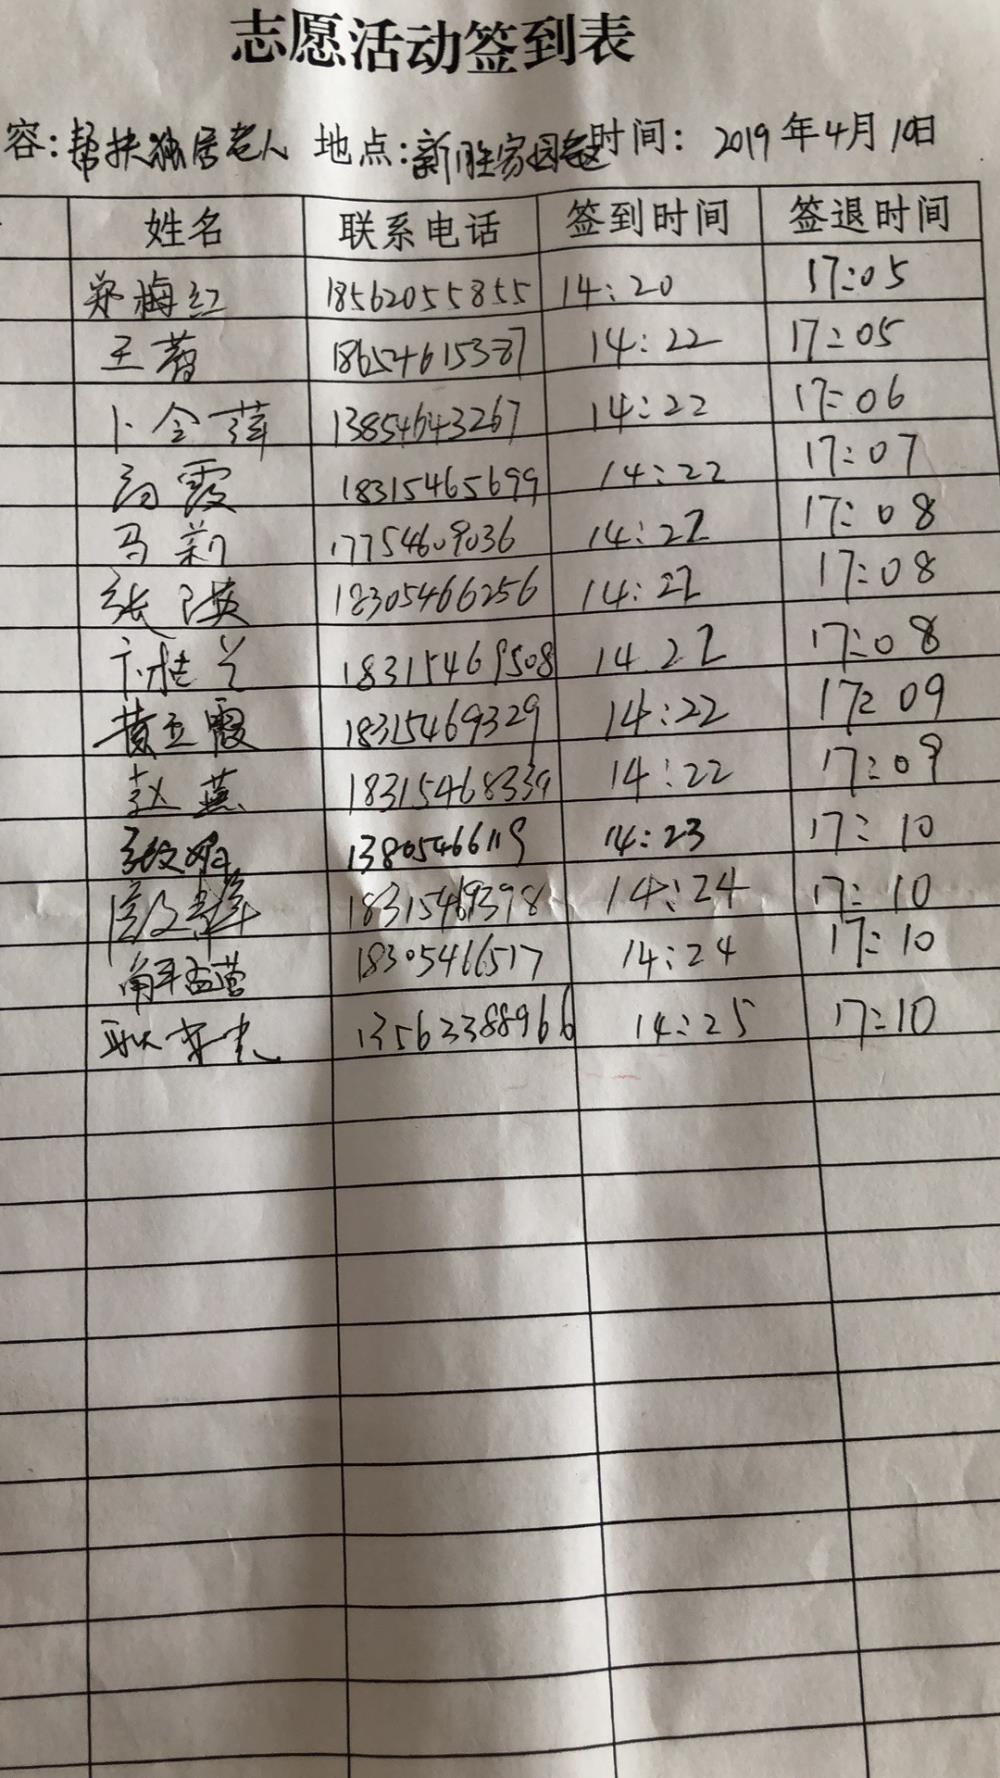 志愿活动签到表
容:帮扶独居老人 地点:新胜家园 时间: 2019年4月10日
姓名 联系电话 签到时间 签退时间
郑梅红 18562055855 14:20 17:05
王蓉 18654615387 14:22 17:05
卜令萍 13854643267 14:22 17:06
霞 18315465699 14:22 17:07
马莉 17754609036 14:22 17:08
张瑛 18305466256 14:22 17:08
18315469508 14 22 17:08
黄玉霞 18315469329 14:22 17:09
赵燕 18315468339 14:22 17:09
张文娟 1380546619 14:23 17:10
18315469398 14:24 17:10
解孟营 18305466517 14:24 17:10
耿 13563388966 14:25 17:10